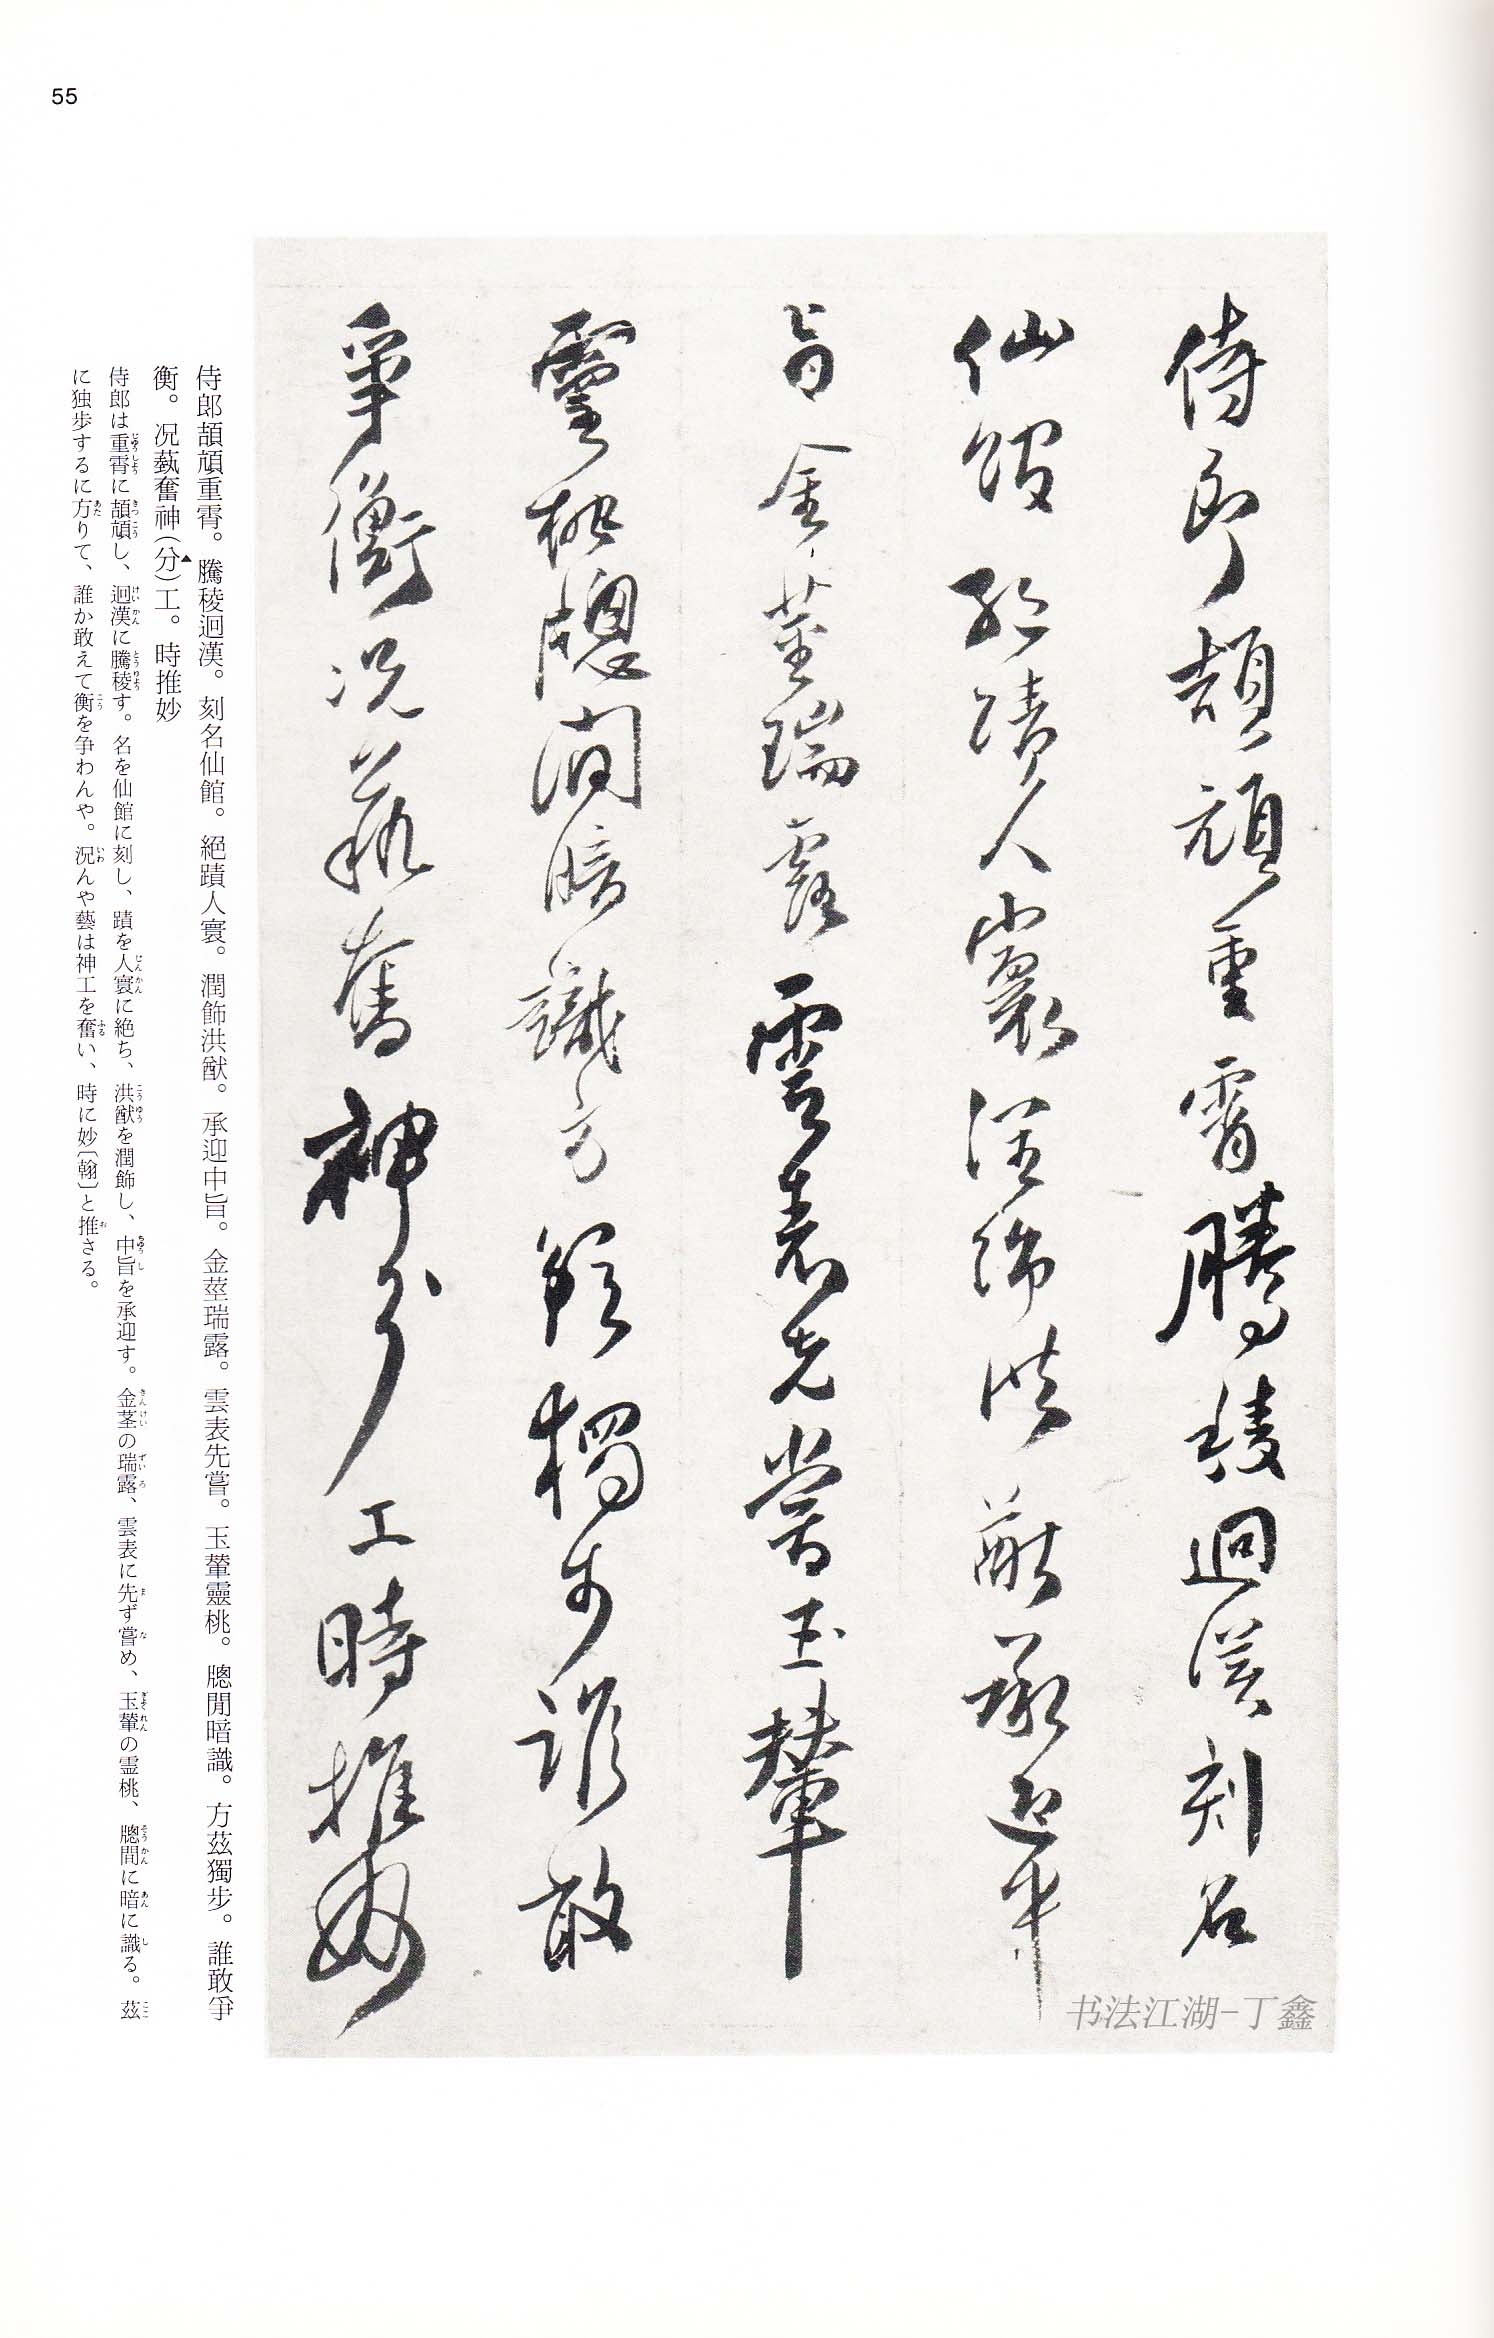 55
侍郎頡頏重霄騰稜迥漢刻名
仙館絕蹟人寰潤飾洪猷承迎中
旨金莖瑞露雲表先嘗玉輦
靈桃牕間暗識方茲獨步誰敢
爭衡況藝奮神分工時推妙
书法江湖-丁鑫
侍郎頡頏重霄。騰稜迥漢。刻名仙館。絕蹟人寰。潤飾洪猷。承迎中旨。金莖瑞露。雲表先嘗。玉輦靈桃。牕閒暗識。方茲獨步。誰敢爭
衡。況蓺奮神(分)工。時推妙
侍郎は重霄に頡頏し、迥漢に騰稜す。名を仙館に刻し、蹟を人寰に絶ち、洪猷を潤飾し、中旨を承迎す。金茎の瑞露、雲表に先ず嘗め、玉輦の霊桃、牕間に暗に識る。茲
に独歩するに方りて、誰か敢えて衡を争わんや。況んや藝は神工を奮い、時に妙〔翰〕と推さる。